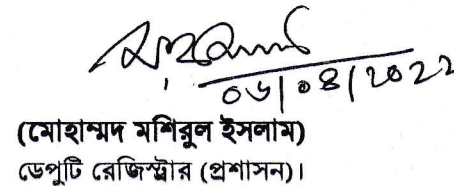 ০৬/০৪/২০২২
(মোহাম্মদ মশিরুল ইসলাম)
ডেপুটি রেজিস্ট্রার (প্রশাসন)।